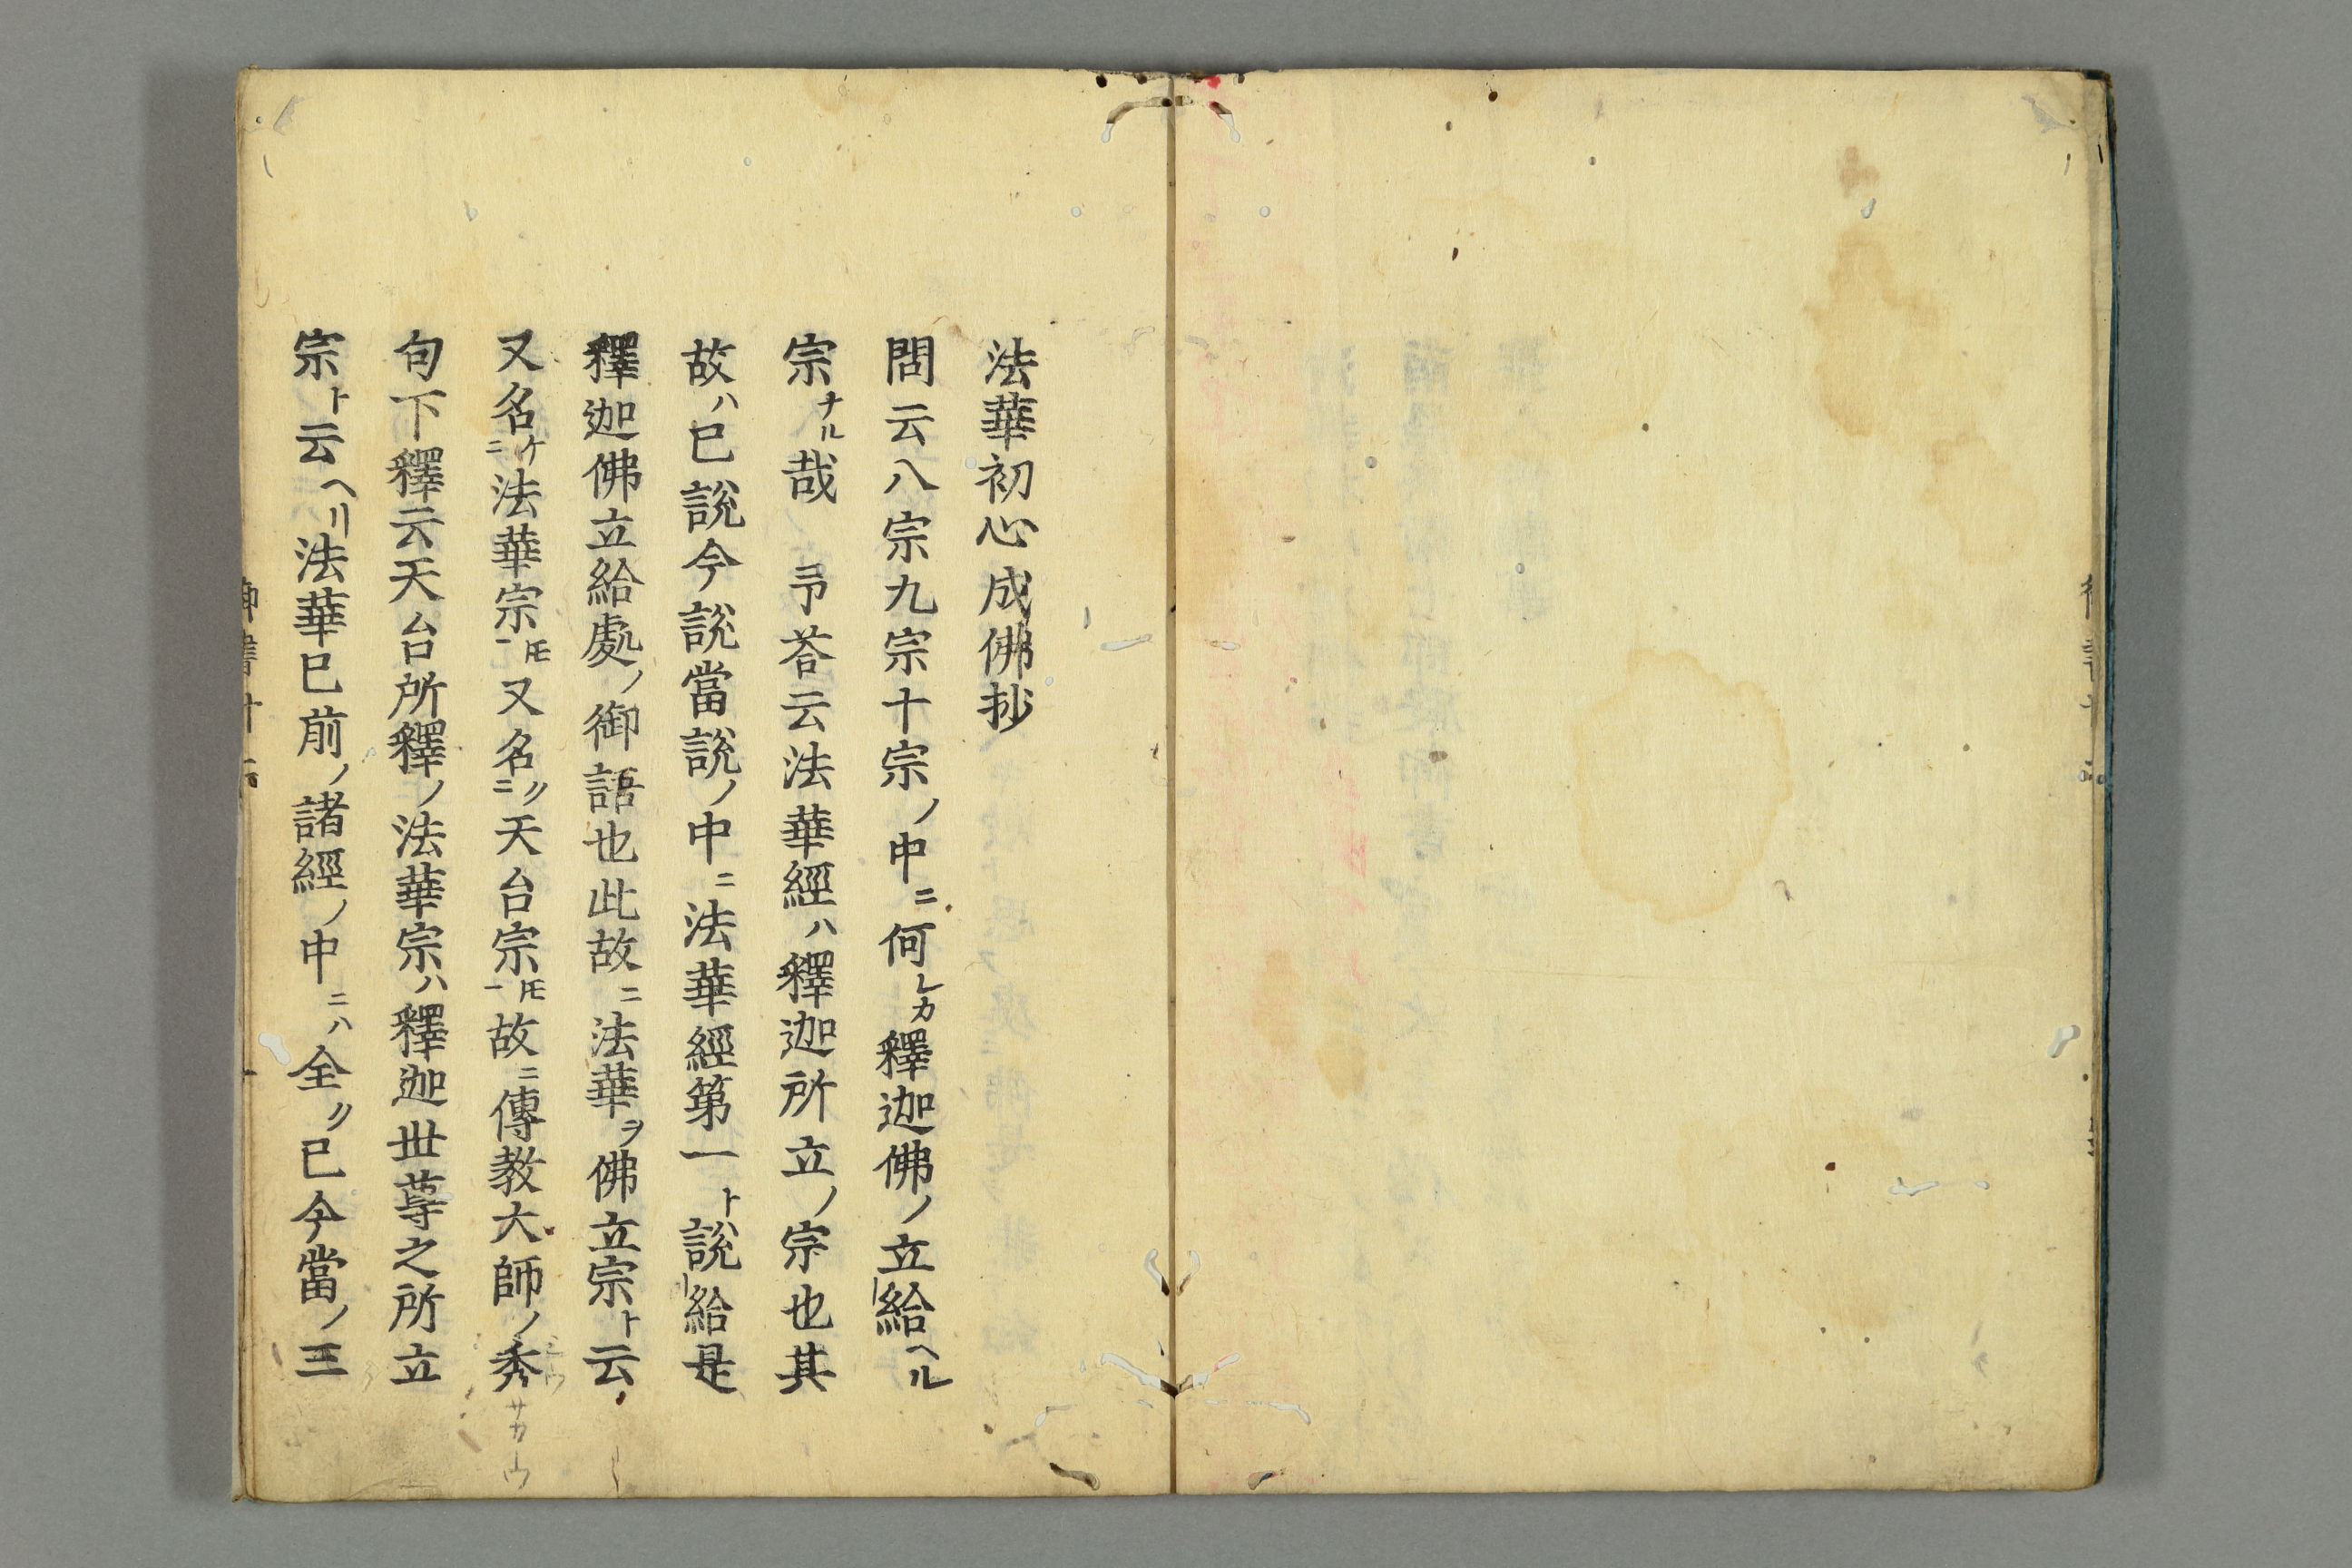 法華初心成佛抄
問云八宗九宗十宗ノ中ニ何レカ釋迦佛ノ立給ヘル
宗ナル哉 予荅云法華經ハ釋迦所立ノ宗也其
故ハ已說今說當說ノ中ニ法華經第一ト說給是
釋迦佛立給處ノ御語也此故ニ法華ヲ佛立宗ト云
又名ケ二法華宗一トモ又名ク二天台宗一トモ故ニ傳教大師ノ秀
句下釋云天台所釋ノ法華宗ハ釋迦世尊之所立
宗ト云ヘリ法華已前ノ諸經ノ中ニハ全ク已今當ノ三